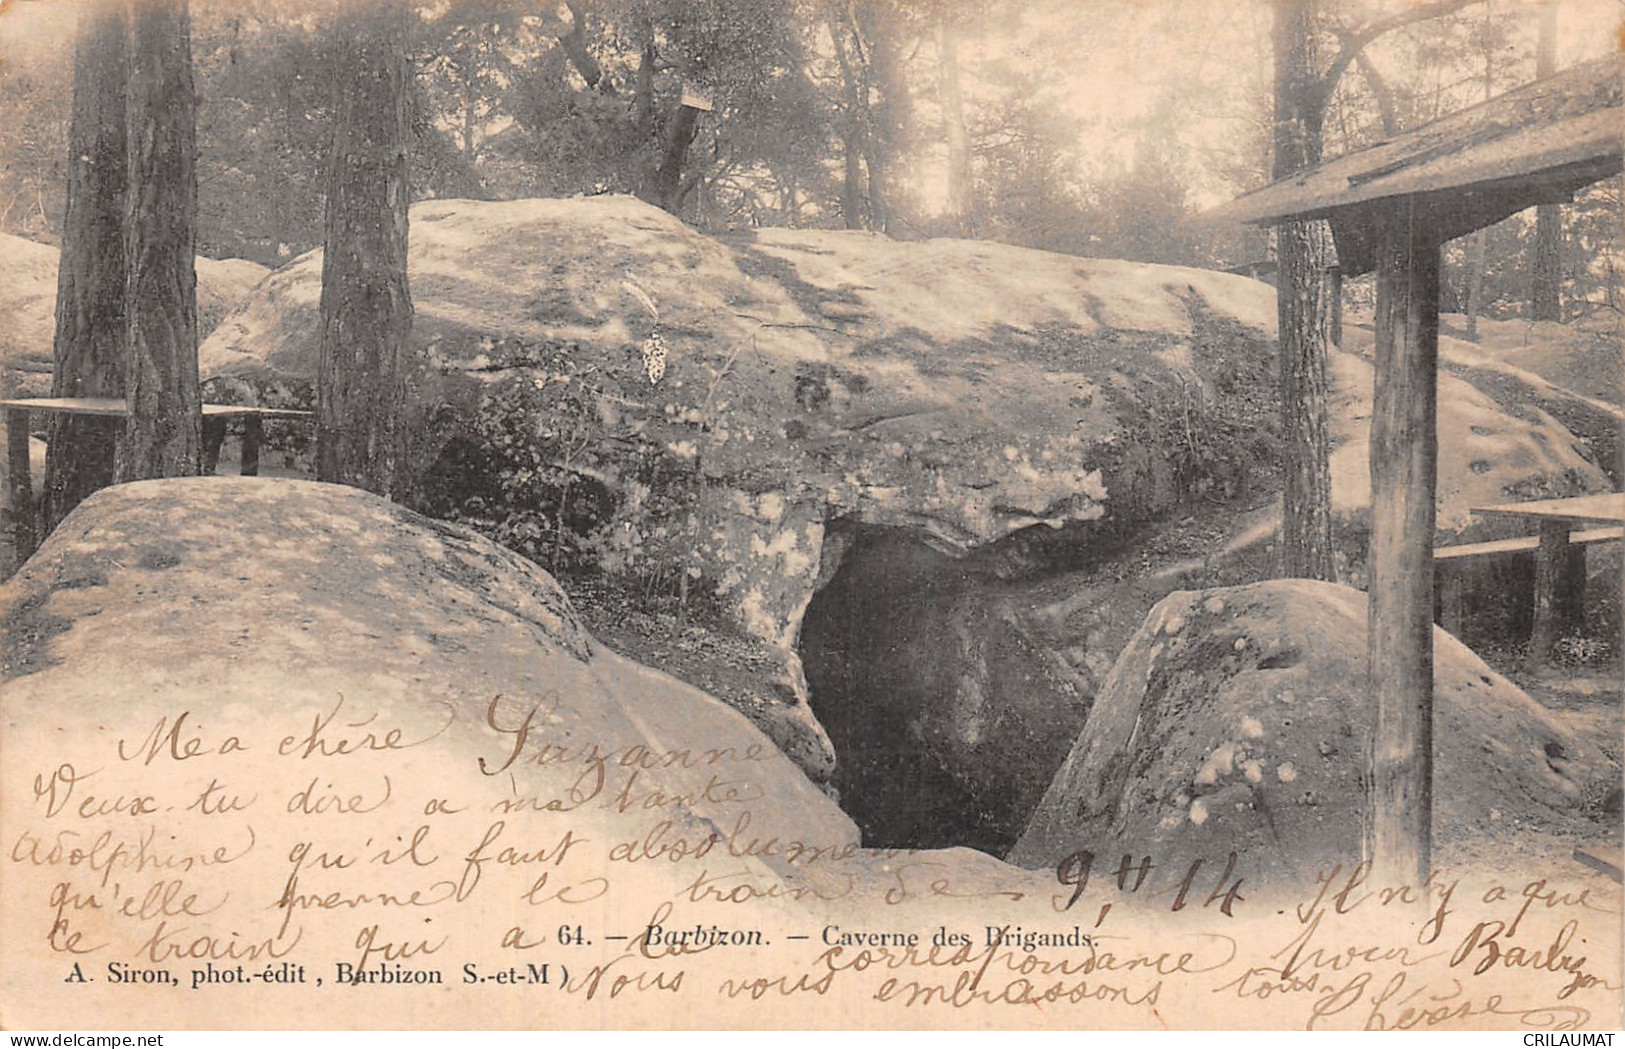 Mea chère Suzanne
Veux-tu dire a ma tante
Adolphine qu'il faut absolument
qu'elle prenne le train de 9H, 14. Il n'y a que
ce train qui a la correspondance pour Barbizon
64. — Barbizon. — Caverne des Brigands.
A. Siron, phot.-édit, Barbizon S.-et-M)
Nous vous embrassons tous.
Thérèse
www.delcampe.net
CRILAUMAT